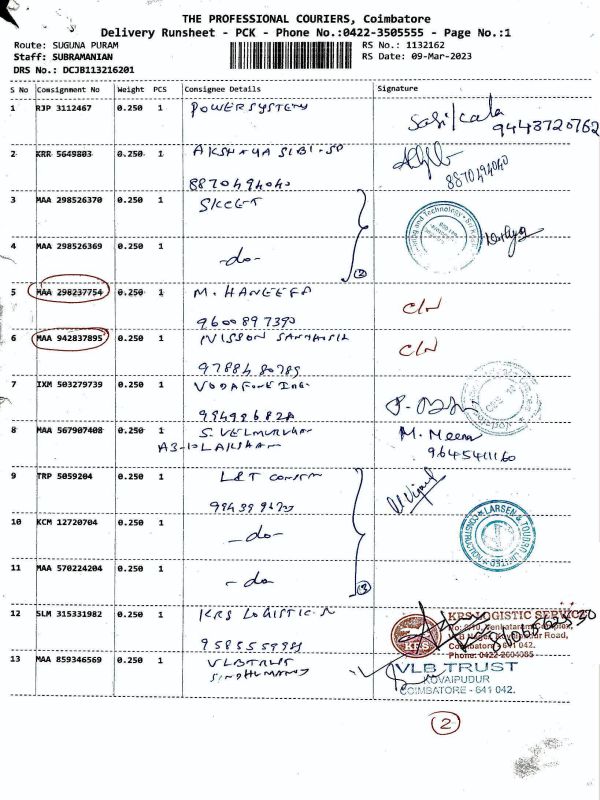 THE PROFESSIONAL COURIERS, Coimbatore
Delivery Runsheet - PCK - Phone No.:0422-3505555 - Page No.:1
Route: SUGUNA PURAM
RS No.: 1132162
Staff: SUBRAMANIAN
RS Date: 09-Mar-2023
DRS No.: DCJB113216201
S No Consignment No Weight PCS Consignee Details Signature
1 RJP 3112467 0.250 1 POWERSYSTEM
9443720762
2 KRR 5649803 0.250 1
8870494040
8870494040
3 MAA 298526370 0.250 1 SKCET
4 MAA 298526369 0.250 1 -do-
(2)
5 MAA 298237754 0.250 1 M. HANEEFA C/N
9600897390
6 MAA 942837895 0.250 1 C/N
9788480789
7 IXM 503279739 0.250 1 VODAFONE
8 MAA 567907408 0.250 1 S. VELMURUGAN M. Meena
9645411160
9 TRP 5059204 0.250 1 L&T
10 KCM 12720704 0.250 1 -do-
LARSEN & TOUBRO LIMITED
CONSTRUCTION
11 MAA 570224204 0.250 1 -do-
(3)
12 SLM 315331982 0.250 1 KRS LOGISTICS
KRS LOGISTIC SERVICE
KRS
Coimbatore - 641 042.
Phone: 0422-2604085
13 MAA 859346569 0.250 1 VLB TRUST
VLB TRUST
KOVAIPUDUR
COIMBATORE - 641 042.
2